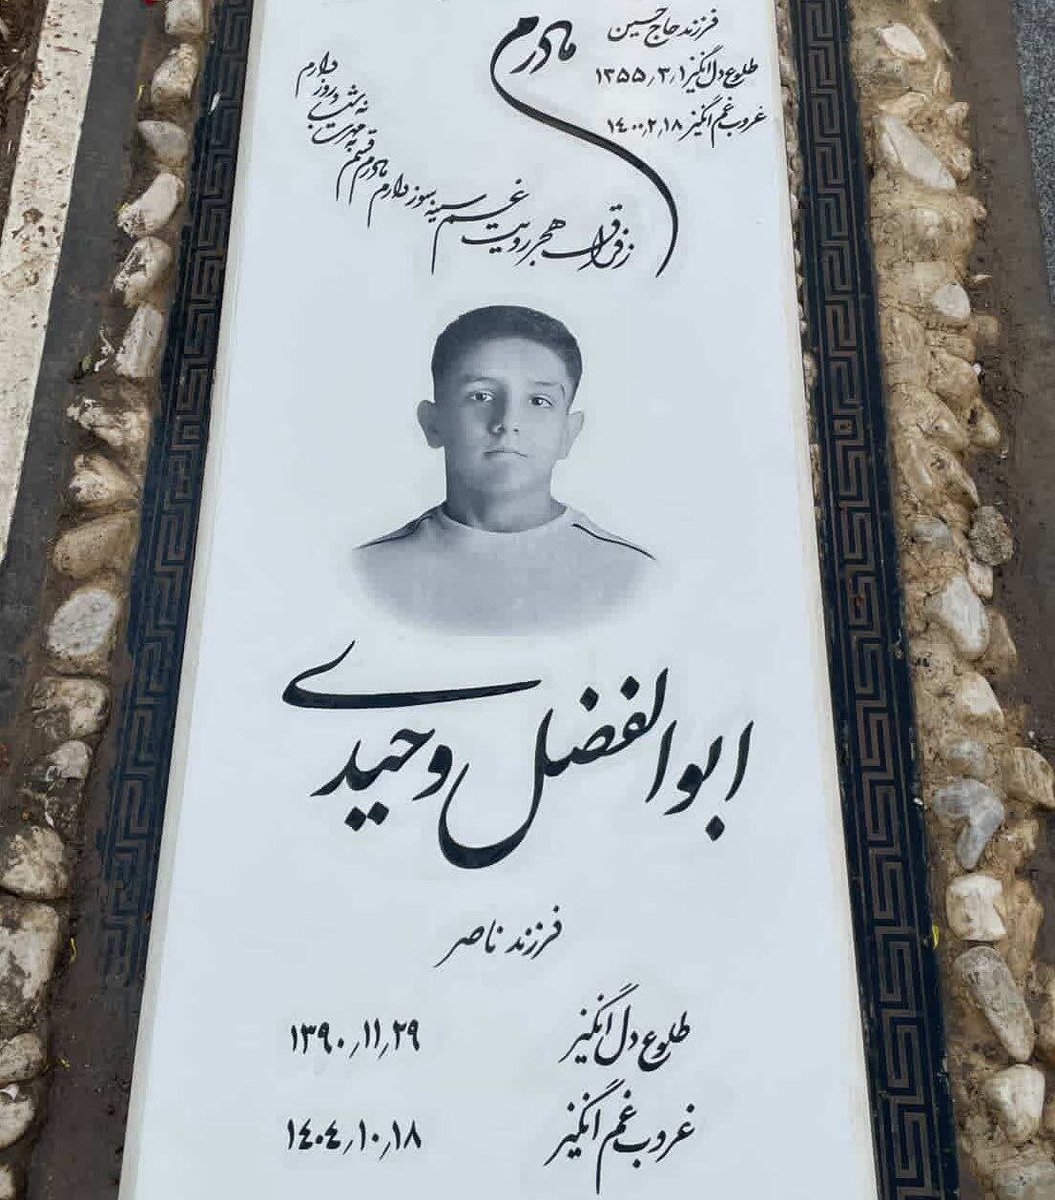 فرزند حاج حسین
مادرم
طلوع دل انگیز ۱۳۵۵٫۳٫۱
غروب غم انگیز ۱۴۰۰٫۲٫۱۸
ز فراق هجر رویت غم سینه سوز دارم
مادرم قسم به مهرت نه شب و نه روز دارم
ابوالفضل وحیدی
فرزند ناصر
طلوع دل انگیز ۱۳۹۰٫۱۱٫۲۹
غروب غم انگیز ۱۴۰۴٫۱۰٫۱۸